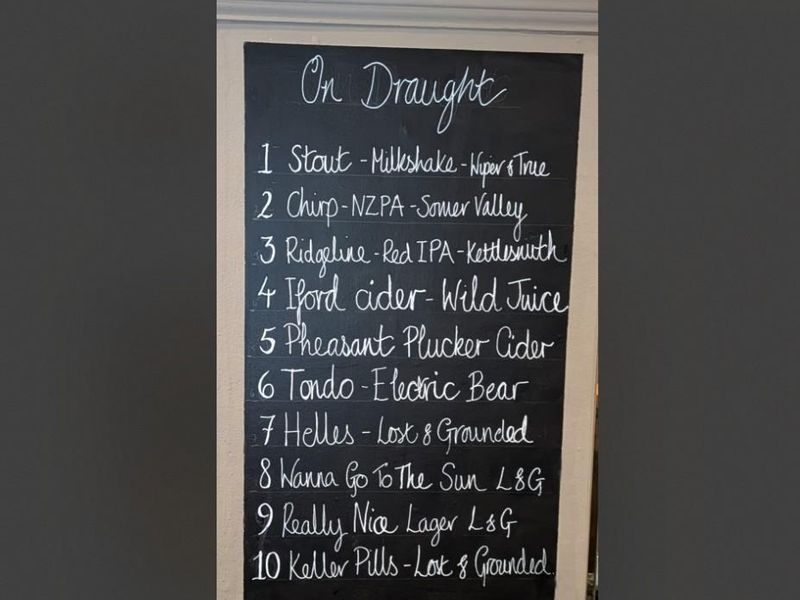 On Draught
1 Stout - Milkshake - Wiper & True
2 Chirp - NZPA - Somer Valley
3 Ridgeline - Red IPA - Kettlesmith
4 Iford cider - Wild Juice
5 Pheasant Plucker Cider
6 Tondo - Electric Bear
7 Helles - Lost & Grounded
8 Wanna Go To The Sun L&G
9 Really Nice Lager L&G
10 Keller Pills - Lost & Grounded